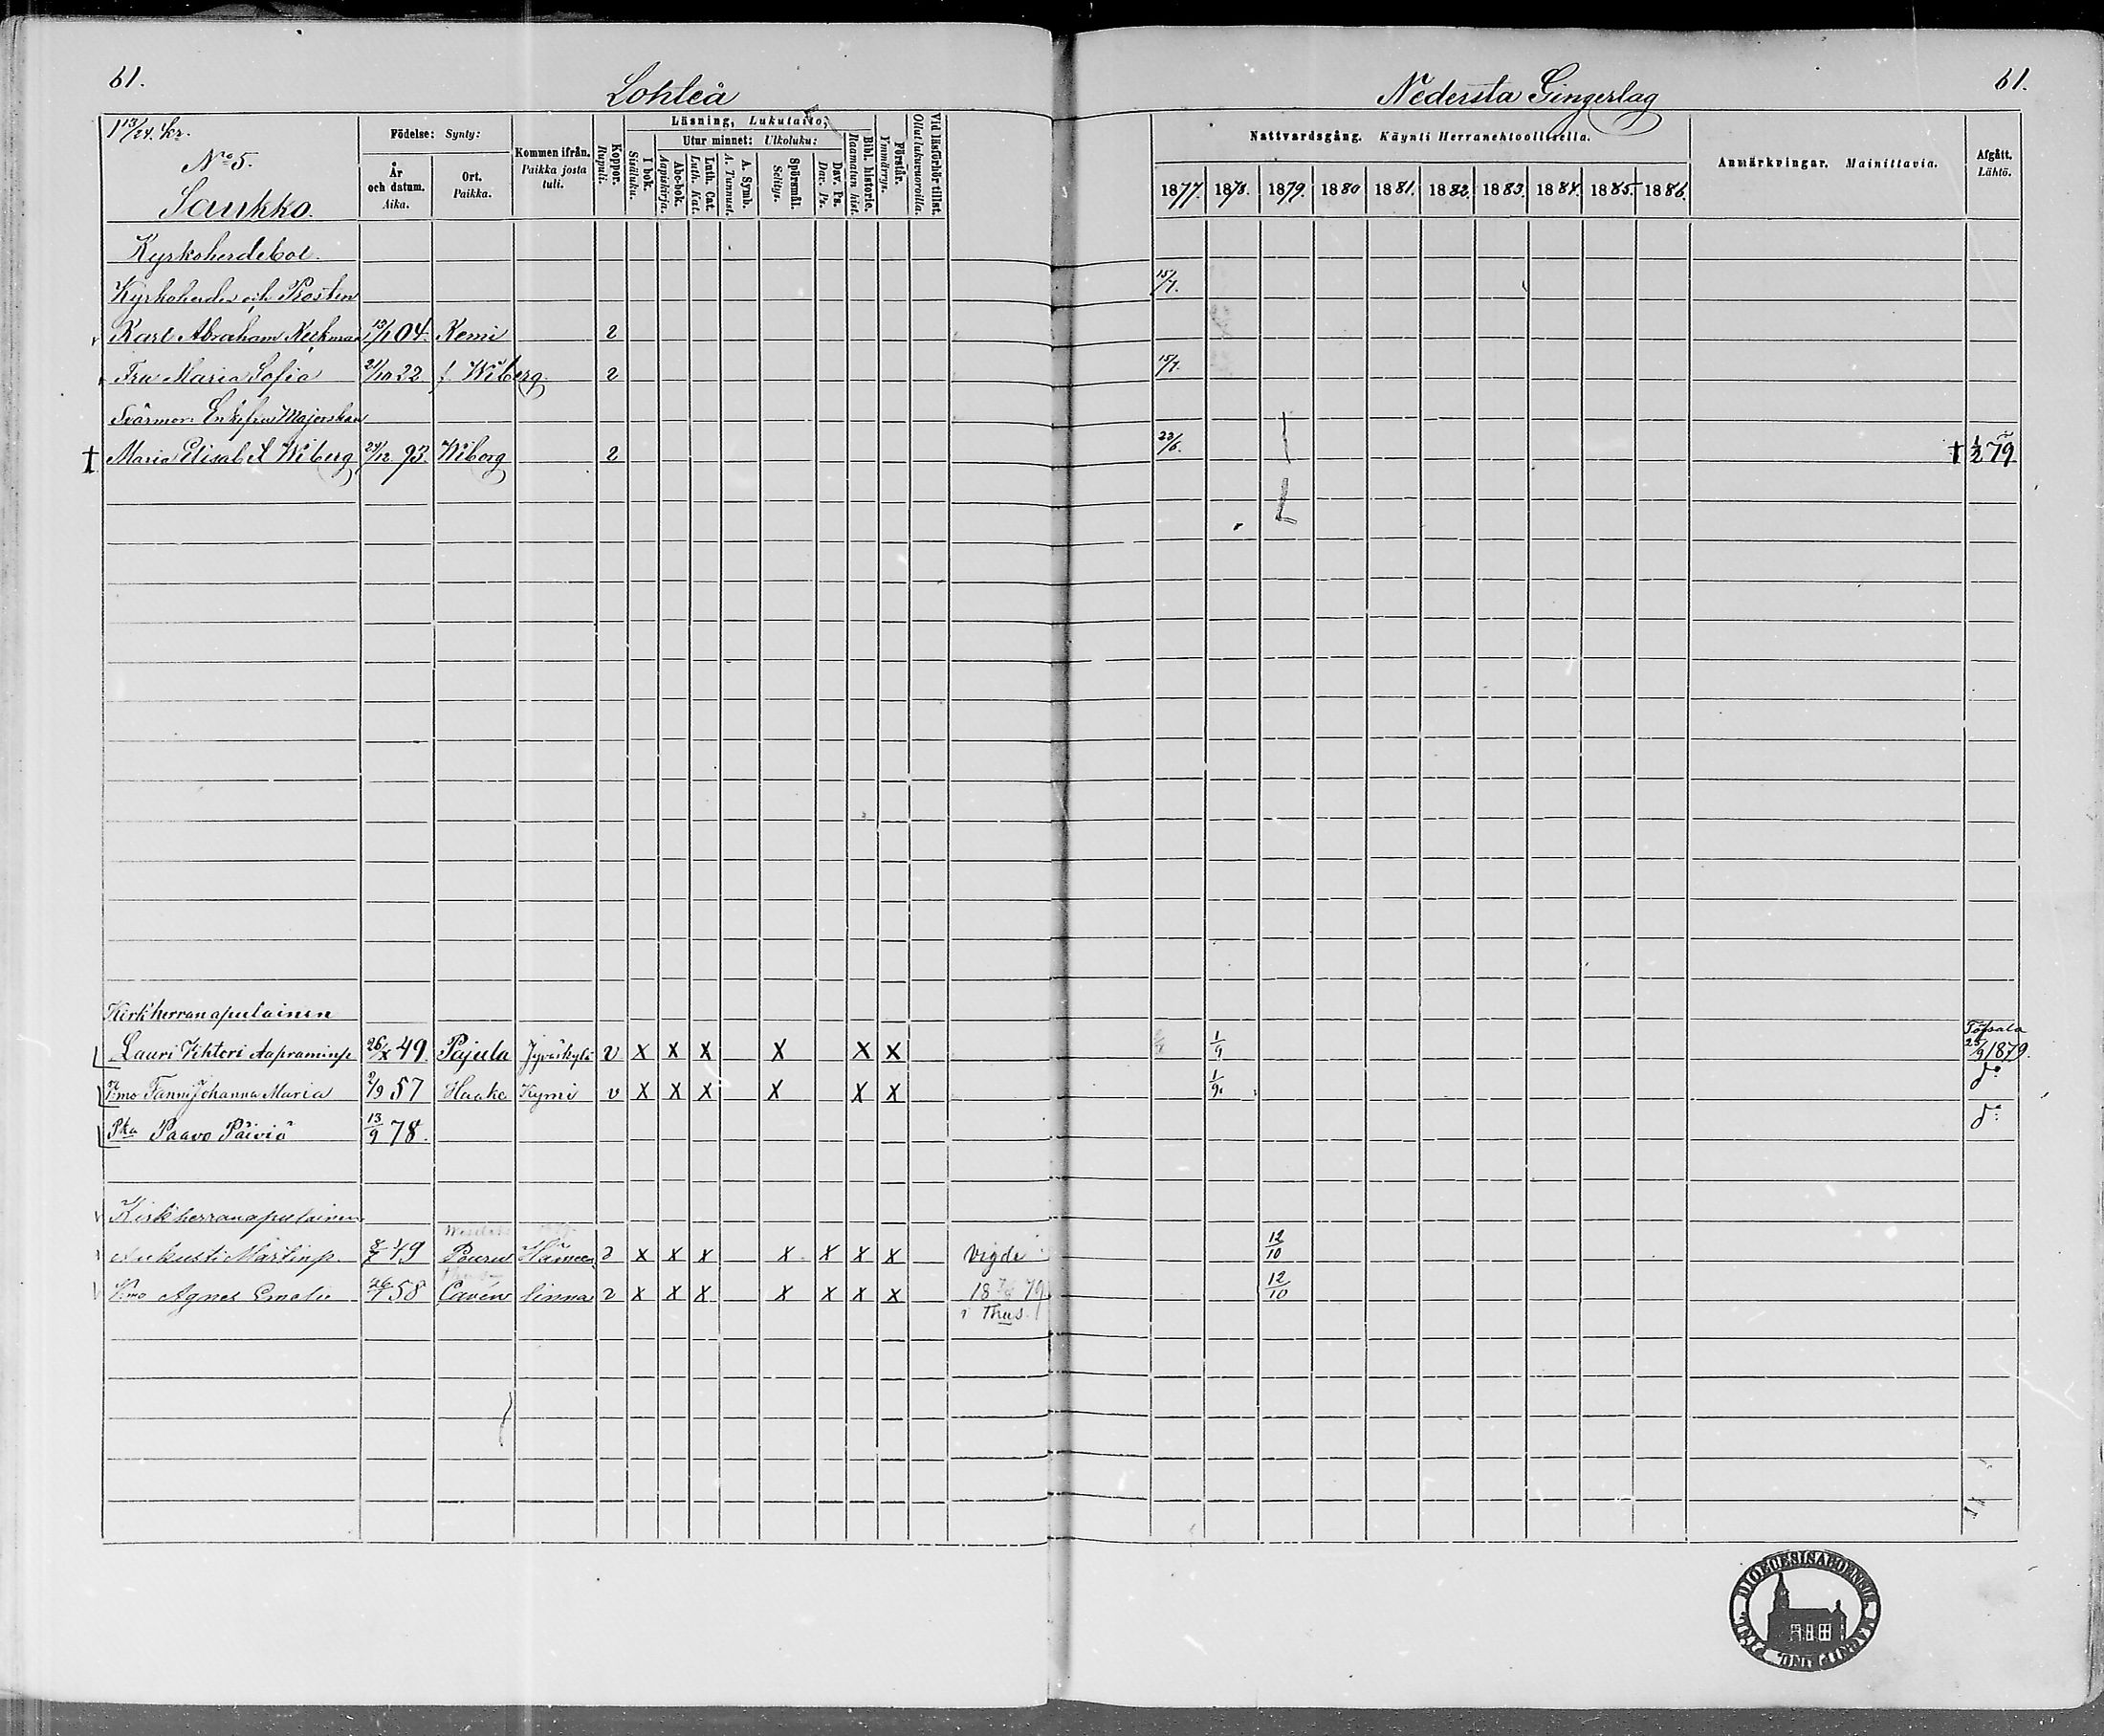 61.
Lohteå
Nedersta Gingerlag
61.
1 13/24. kr.
No 5.
Saukko.
Födelse: Synty:
År och datum. Aika.
Ort. Paikka.
Kommen ifrån. Paikka josta tuli.
Koppor. Rupuli.
Läsning, Lukutaito;
I bok. Sisäluku.
Utur minnet: Ulkoluku:
Abc-bok. Aapiskirja.
Luth. Cat. Luth. Kat.
A. Symb. A. Tunnust.
Spörsmål. Selitys.
Dav. Ps. Dav. Ps.
Bibl. historie. Raamatun hist.
Förstår. Ymmärrys.
Vid läsförhör tillst. Ollut lukuvuoroilla.
Nattvardsgång. Käynti Herranehtoollisella.
1877. 1878. 1879. 1880 1881. 1882. 1883. 1884. 1885. 1886.
Anmärkningar. Mainittavia.
Afgått. Lähtö.
Kyrkoherdebol.
Kyrkoherden och Prosten 15/7.
Karl Abraham 13/1 04. Kemi 2
Fru Maria Sofia 21/10 22 f. Wiberg. 2 15/7.
Svärmor: Enkefru Majorskan
† Maria Elisabet Wiberg 24/12. 93. Wiborg 2 † 1/2 79.
Kirkherranapulainen
Lauri Vihtori Aapraminp 26/X 49. Pajula Jyväskylä v X X X X X X 1/9 25/9 1879.
V:mo Fanni Johanna Maria 2/9 57 Haake Kymi v X X X X X X 1/9. do
Pka Paavo Päiviö 13/9 78. do
Kirkherranapulainen
Aukusti Martinp. 49 Hämeen 2 X X X X X X X Vigde 12/10
V:mo Agnes Emelie 58 linna 2 X X X X X X X 18 79. 12/10
i Thus.